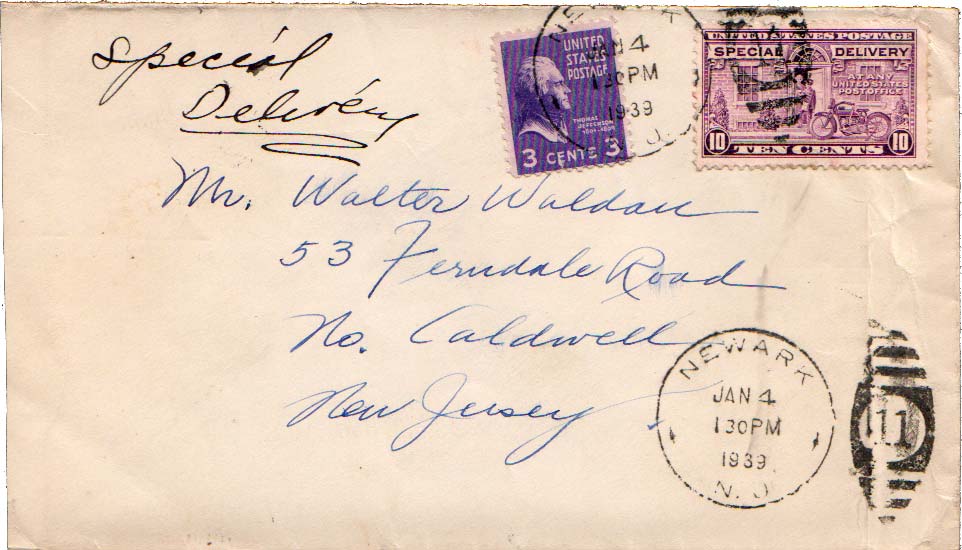 Special
Delivery
UNITED
STATES
POSTAGE
THOMAS
JEFFERSON
1801-1809
3 CENTS 3
NEWARK
JAN 4
130PM
1939
N. J.
UNITED STATES POSTAGE
SPECIAL DELIVERY
AT ANY
UNITED STATES
POST OFFICE
10 TEN CENTS 10
Mr. Walter Waldau
53 Ferndale Road
No. Caldwell
New Jersey
NEWARK
JAN 4
130PM
1939
N. J.
11